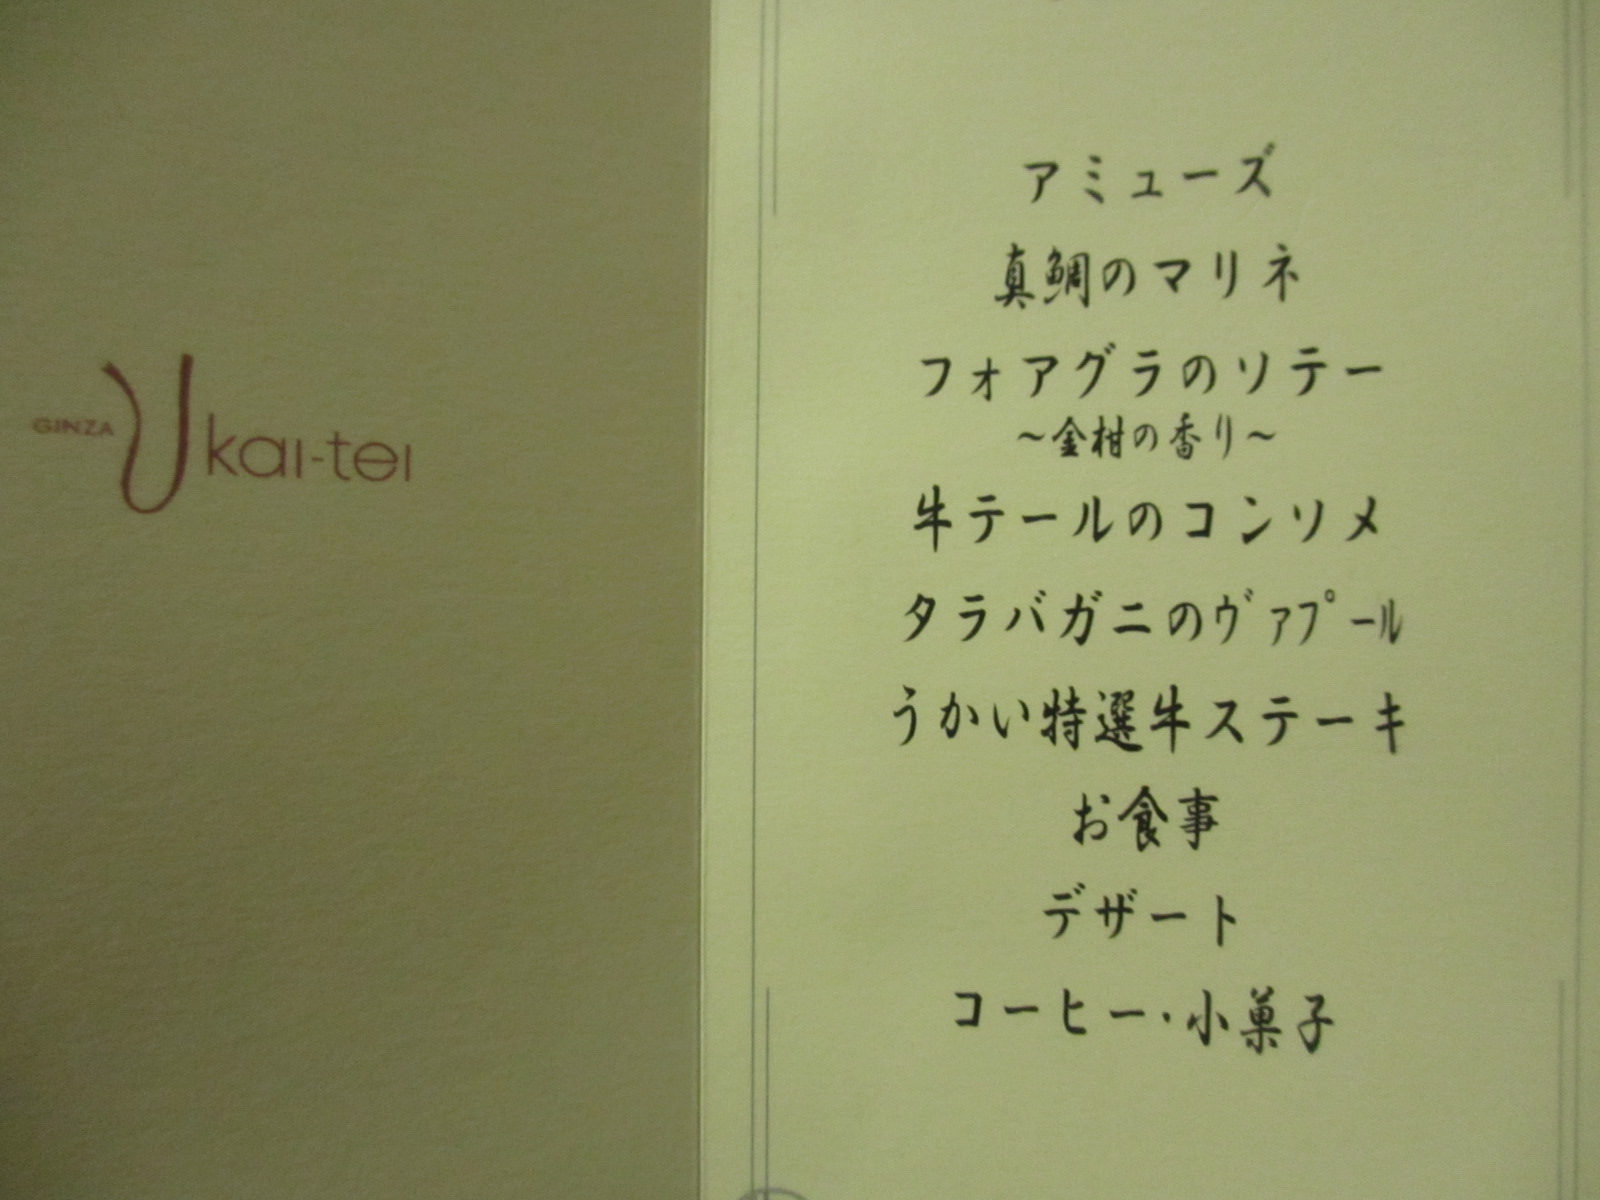 GINZA Ukai-tei
アミューズ
真鯛のマリネ
フォアグラのソテー
～金柑の香り～
牛テールのコンソメ
タラバガニのヴァプール
うかい特選牛ステーキ
お食事
デザート
コーヒー・小菓子